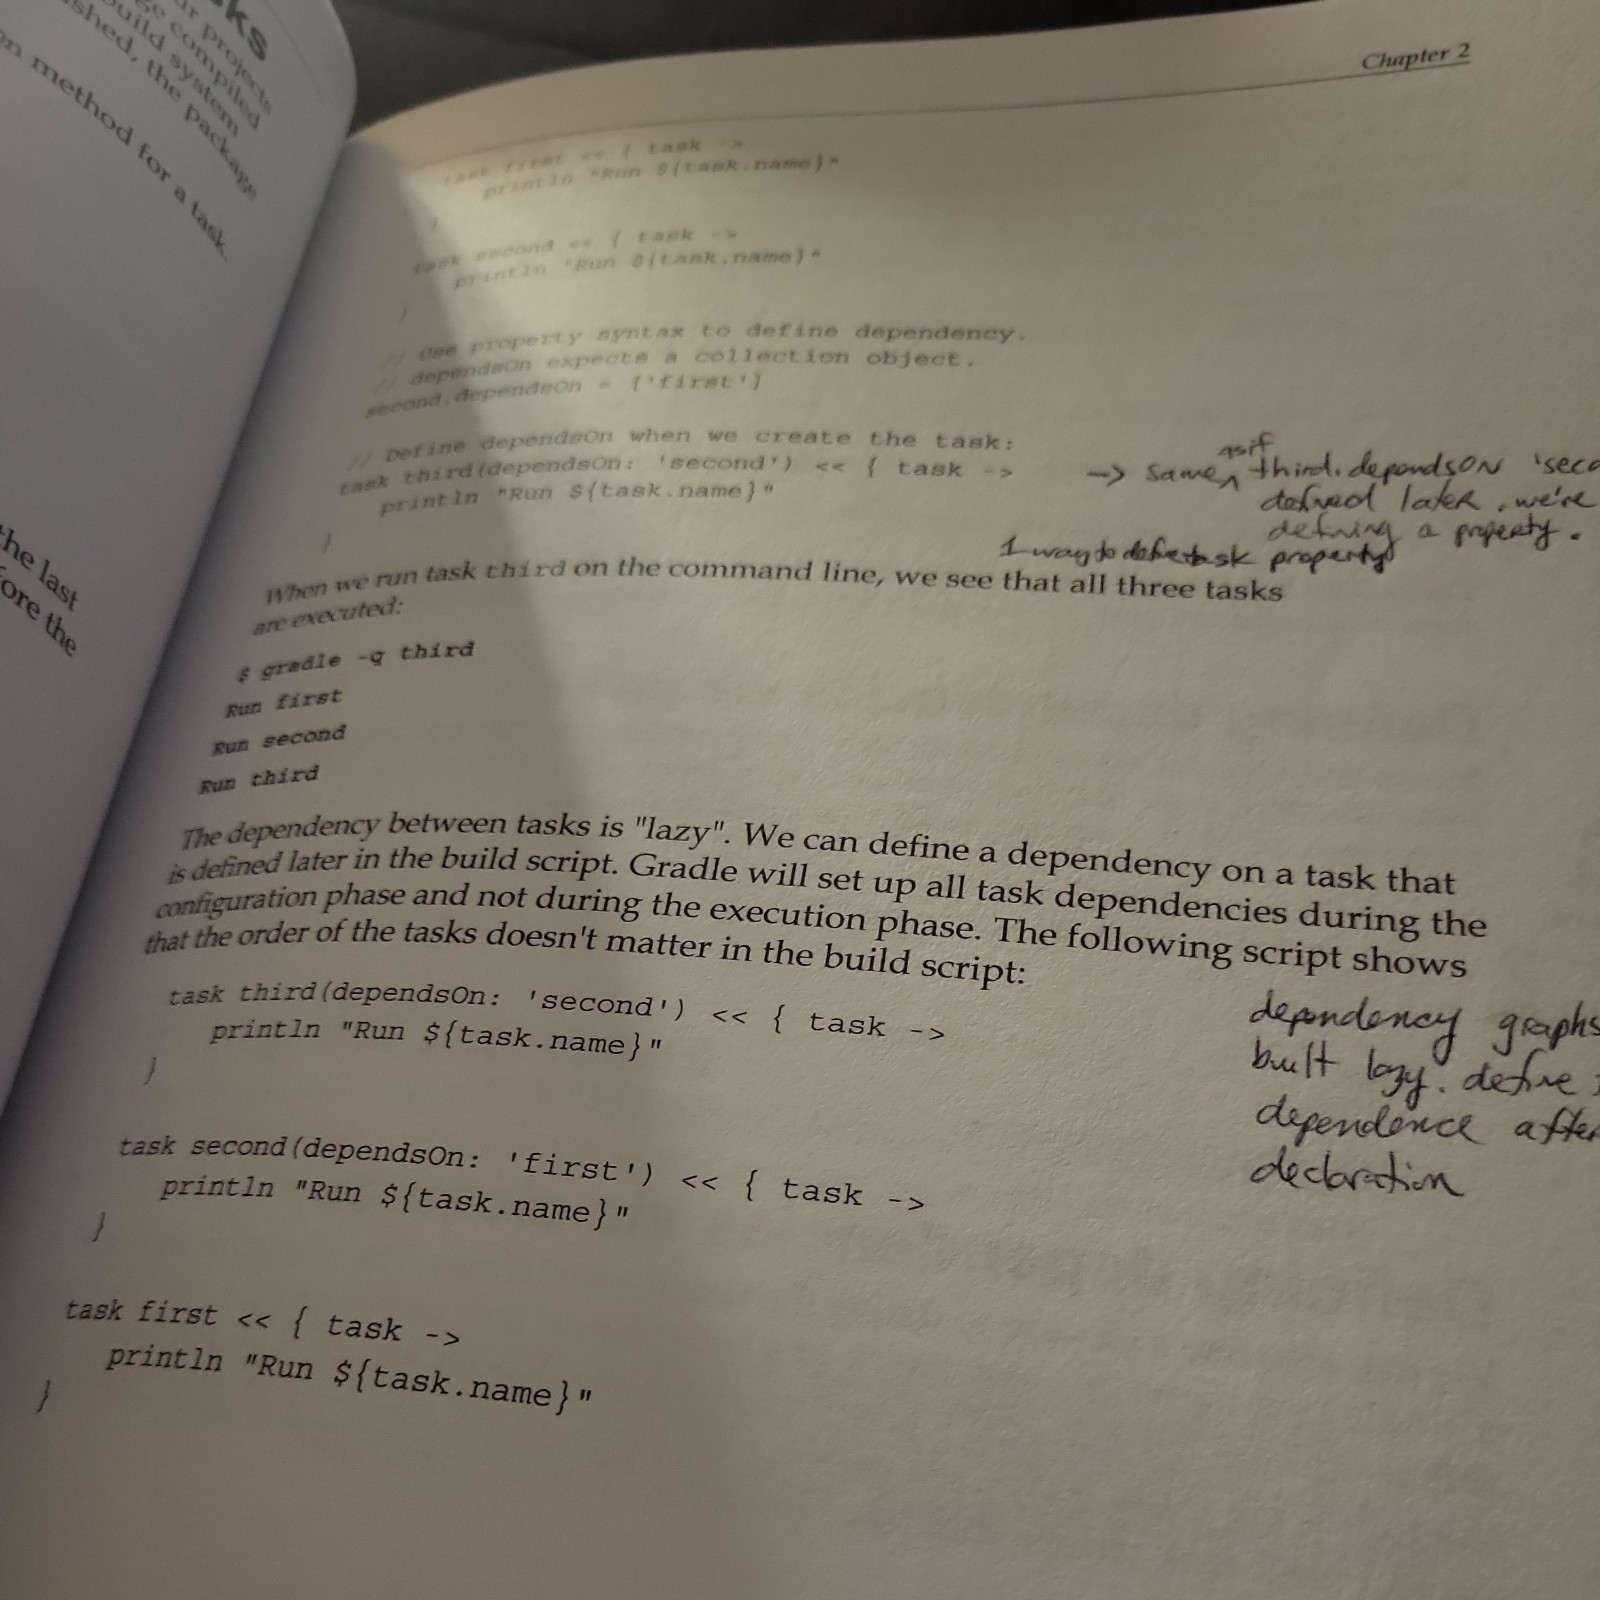 sks
ur projects
ge compiled
build system
shed, the package
on method for a task
the last
fore the
Chapter 2
task first << { task ->
println "Run ${task.name}"
}
task second << { task ->
println "Run ${task.name}"
}
// Use property syntax to define dependency.
// dependsOn expects a collection object.
second.dependsOn = ['first']
// Define dependsOn when we create the task:
task third(dependsOn: 'second') << { task ->
println "Run ${task.name}"
}
as if
-> same ^ third.dependsON 'seco
defined later, we're
defining a property.
1 way to define task property
When we run task third on the command line, we see that all three tasks
are executed:
$ gradle -q third
Run first
Run second
Run third
The dependency between tasks is "lazy". We can define a dependency on a task that
is defined later in the build script. Gradle will set up all task dependencies during the
configuration phase and not during the execution phase. The following script shows
that the order of the tasks doesn't matter in the build script:
task third(dependsOn: 'second') << { task ->
println "Run ${task.name}"
}
task second(dependsOn: 'first') << { task ->
println "Run ${task.name}"
}
task first << { task ->
println "Run ${task.name}"
}
dependency graphs
built lazy. define
dependence after
declaration